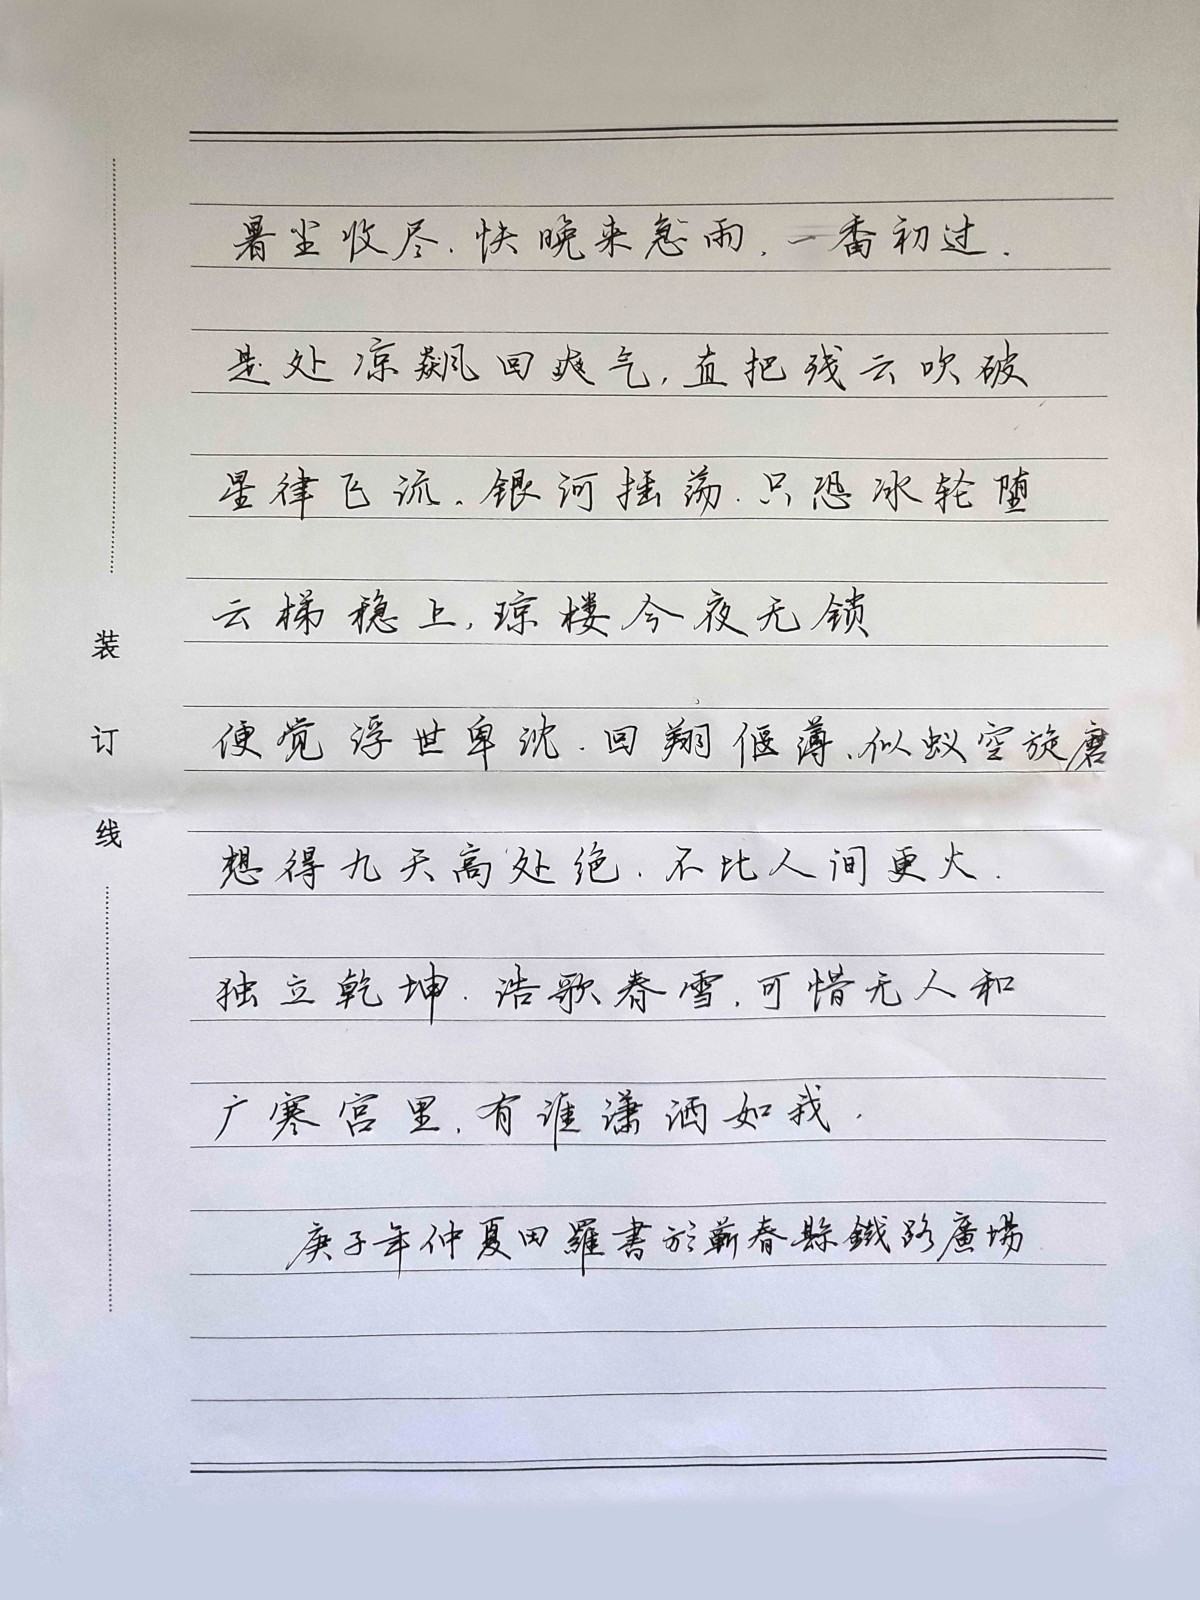 暑尘收尽.快晚来急雨.一番初过.
是处凉飙回爽气,直把残云吹破
星律飞流.银河摇荡.只恐冰轮堕
云梯稳上,琼楼今夜无锁
便觉浮世卑沈.回翔偃薄.似蚁空旋磨
想得九天高处绝.不比人间更火.
独立乾坤.浩歌春雪.可惜无人和
广寒宫里.有谁潇洒如我.
庚子年仲夏田羅書於蘄春縣鐵路廣場
装
订
线